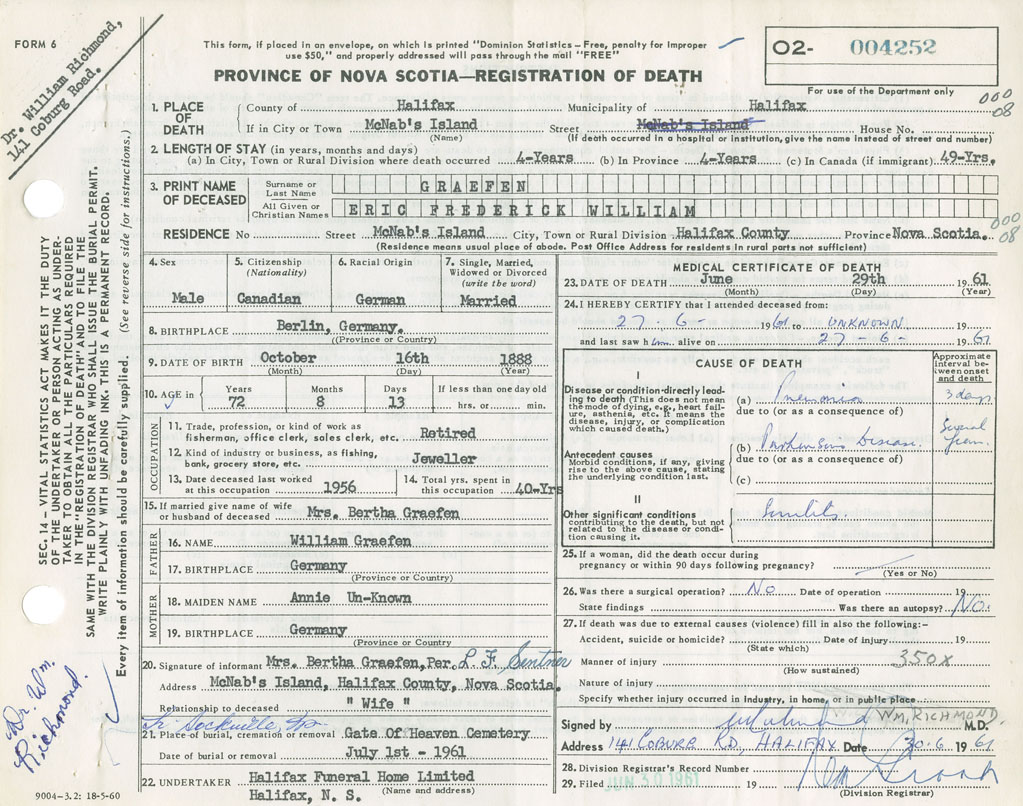 FORM 6
Dr. William Richmond,
141 Coburg Road.
This form, if placed in an envelope, on which is printed "Dominion Statistics – Free, penalty for Improper
use $50," and properly addressed will pass through the mail "FREE"
PROVINCE OF NOVA SCOTIA—REGISTRATION OF DEATH
02- 004252
For use of the Department only
000
08
1. PLACE OF DEATH
County of Halifax Municipality of Halifax
If in City or Town McNab's Island Street McNab's Island House No.
(Name) (If death occurred in a hospital or institution, give the name instead of street and number)
2. LENGTH OF STAY (in years, months and days)
(a) In City, Town or Rural Division where death occurred 4-Years (b) In Province 4-Years (c) In Canada (if immigrant) 49-Yrs.
3. PRINT NAME OF DECEASED
Surname or Last Name GRAEFEN
All Given or Christian Names ERIC FREDERICK WILLIAM
000
08
RESIDENCE No Street McNab's Island City, Town or Rural Division Halifax County Province Nova Scotia.
(Residence means usual place of abode. Post Office Address for residents in rural parts not sufficient)
4. Sex
Male
5. Citizenship
(Nationality)
Canadian
6. Racial Origin
German
7. Single, Married, Widowed or Divorced
(write the word)
Married
8. BIRTHPLACE Berlin, Germany.
((Province or Country)
9. DATE OF BIRTH October 16th 1888
(Month) (Day) (Year)
10. AGE in
Years Months Days If less than one day old
72 8 13 hrs. or min.
OCCUPATION
11. Trade, profession, or kind of work as
fisherman, office clerk, sales clerk, etc. Retired
12. Kind of industry or business, as fishing,
bank, grocery store, etc. Jeweller
13. Date deceased last worked
at this occupation 1956
14. Total yrs. spent in
this occupation 40-Yrs
15. If married give name of wife
or husband of deceased Mrs. Bertha Graefen
FATHER
16. NAME William Graefen
17. BIRTHPLACE Germany
(Province or Country)
MOTHER
18. MAIDEN NAME Annie Un-Known
19. BIRTHPLACE Germany
(Province or Country)
20. Signature of informant Mrs. Bertha Graefen, Per. L F. Sentner
Address McNab's Island, Halifax County, Nova Scotia.
Relationship to deceased " Wife "
Sackville
21. Place of burial, cremation or removal Gate Of Heaven Cemetery
Date of burial or removal July 1st - 1961
22. UNDERTAKER Halifax Funeral Home Limited
Halifax, N. S. (Name and address)
MEDICAL CERTIFICATE OF DEATH
23. DATE OF DEATH June 29th 1961
(Month) (Day) (Year)
24. I HEREBY CERTIFY that I attended deceased from:
27 - 6 - 1961 to UNKNOWN 19
and last saw him alive on 27 - 6 - 1961
CAUSE OF DEATH
Approximate interval between onset and death
I
Disease or condition directly leading to death (This does not mean the mode of dying, e.g., heart failure, asthenia, etc. It means the disease, injury, or complication which caused death.)
(a) Pneumonia 3 days
due to (or as a consequence of)
(b) Parkinson's Disease Several years
due to (or as a consequence of)
(c)
Antecedent causes
Morbid conditions, if any, giving rise to the above cause, stating the underlying condition last.
II
Other significant conditions contributing to the death, but not related to the disease or condition causing it.
Senility
25. If a woman, did the death occur during
pregnancy or within 90 days following pregnancy?
(Yes or No)
26. Was there a surgical operation? No Date of operation 19
State findings Was there an autopsy? No.
27. If death was due to external causes (violence) fill in also the following:-
Accident, suicide or homicide? Date of injury 19
(State which)
Manner of injury 350X
(How sustained)
Nature of injury
Specify whether injury occurred in industry, in home, or in public place
Signed by WM. RICHMOND M.D.
Address 141 COBURG RD, HALIFAX Date 30.6 1961
28. Division Registrar's Record Number
29. Filed JUN 30 1961 19
(Division Registrar)
SEC. 14 – VITAL STATISTICS ACT MAKES IT THE DUTY
OF THE UNDERTAKER OR PERSON ACTING AS UNDER-
TAKER TO OBTAIN ALL THE PARTICULARS REQUIRED
IN THE "REGISTRATION OF DEATH" AND TO FILE THE
SAME WITH THE DIVISION REGISTRAR WHO SHALL ISSUE THE BURIAL PERMIT.
WRITE PLAINLY WITH UNFADING INK. THIS IS A PERMANENT RECORD.
Every item of information should be carefully supplied. (See reverse side for instructions.)
Dr. Wm.
Richmond.
9004-3.2: 18-5-60